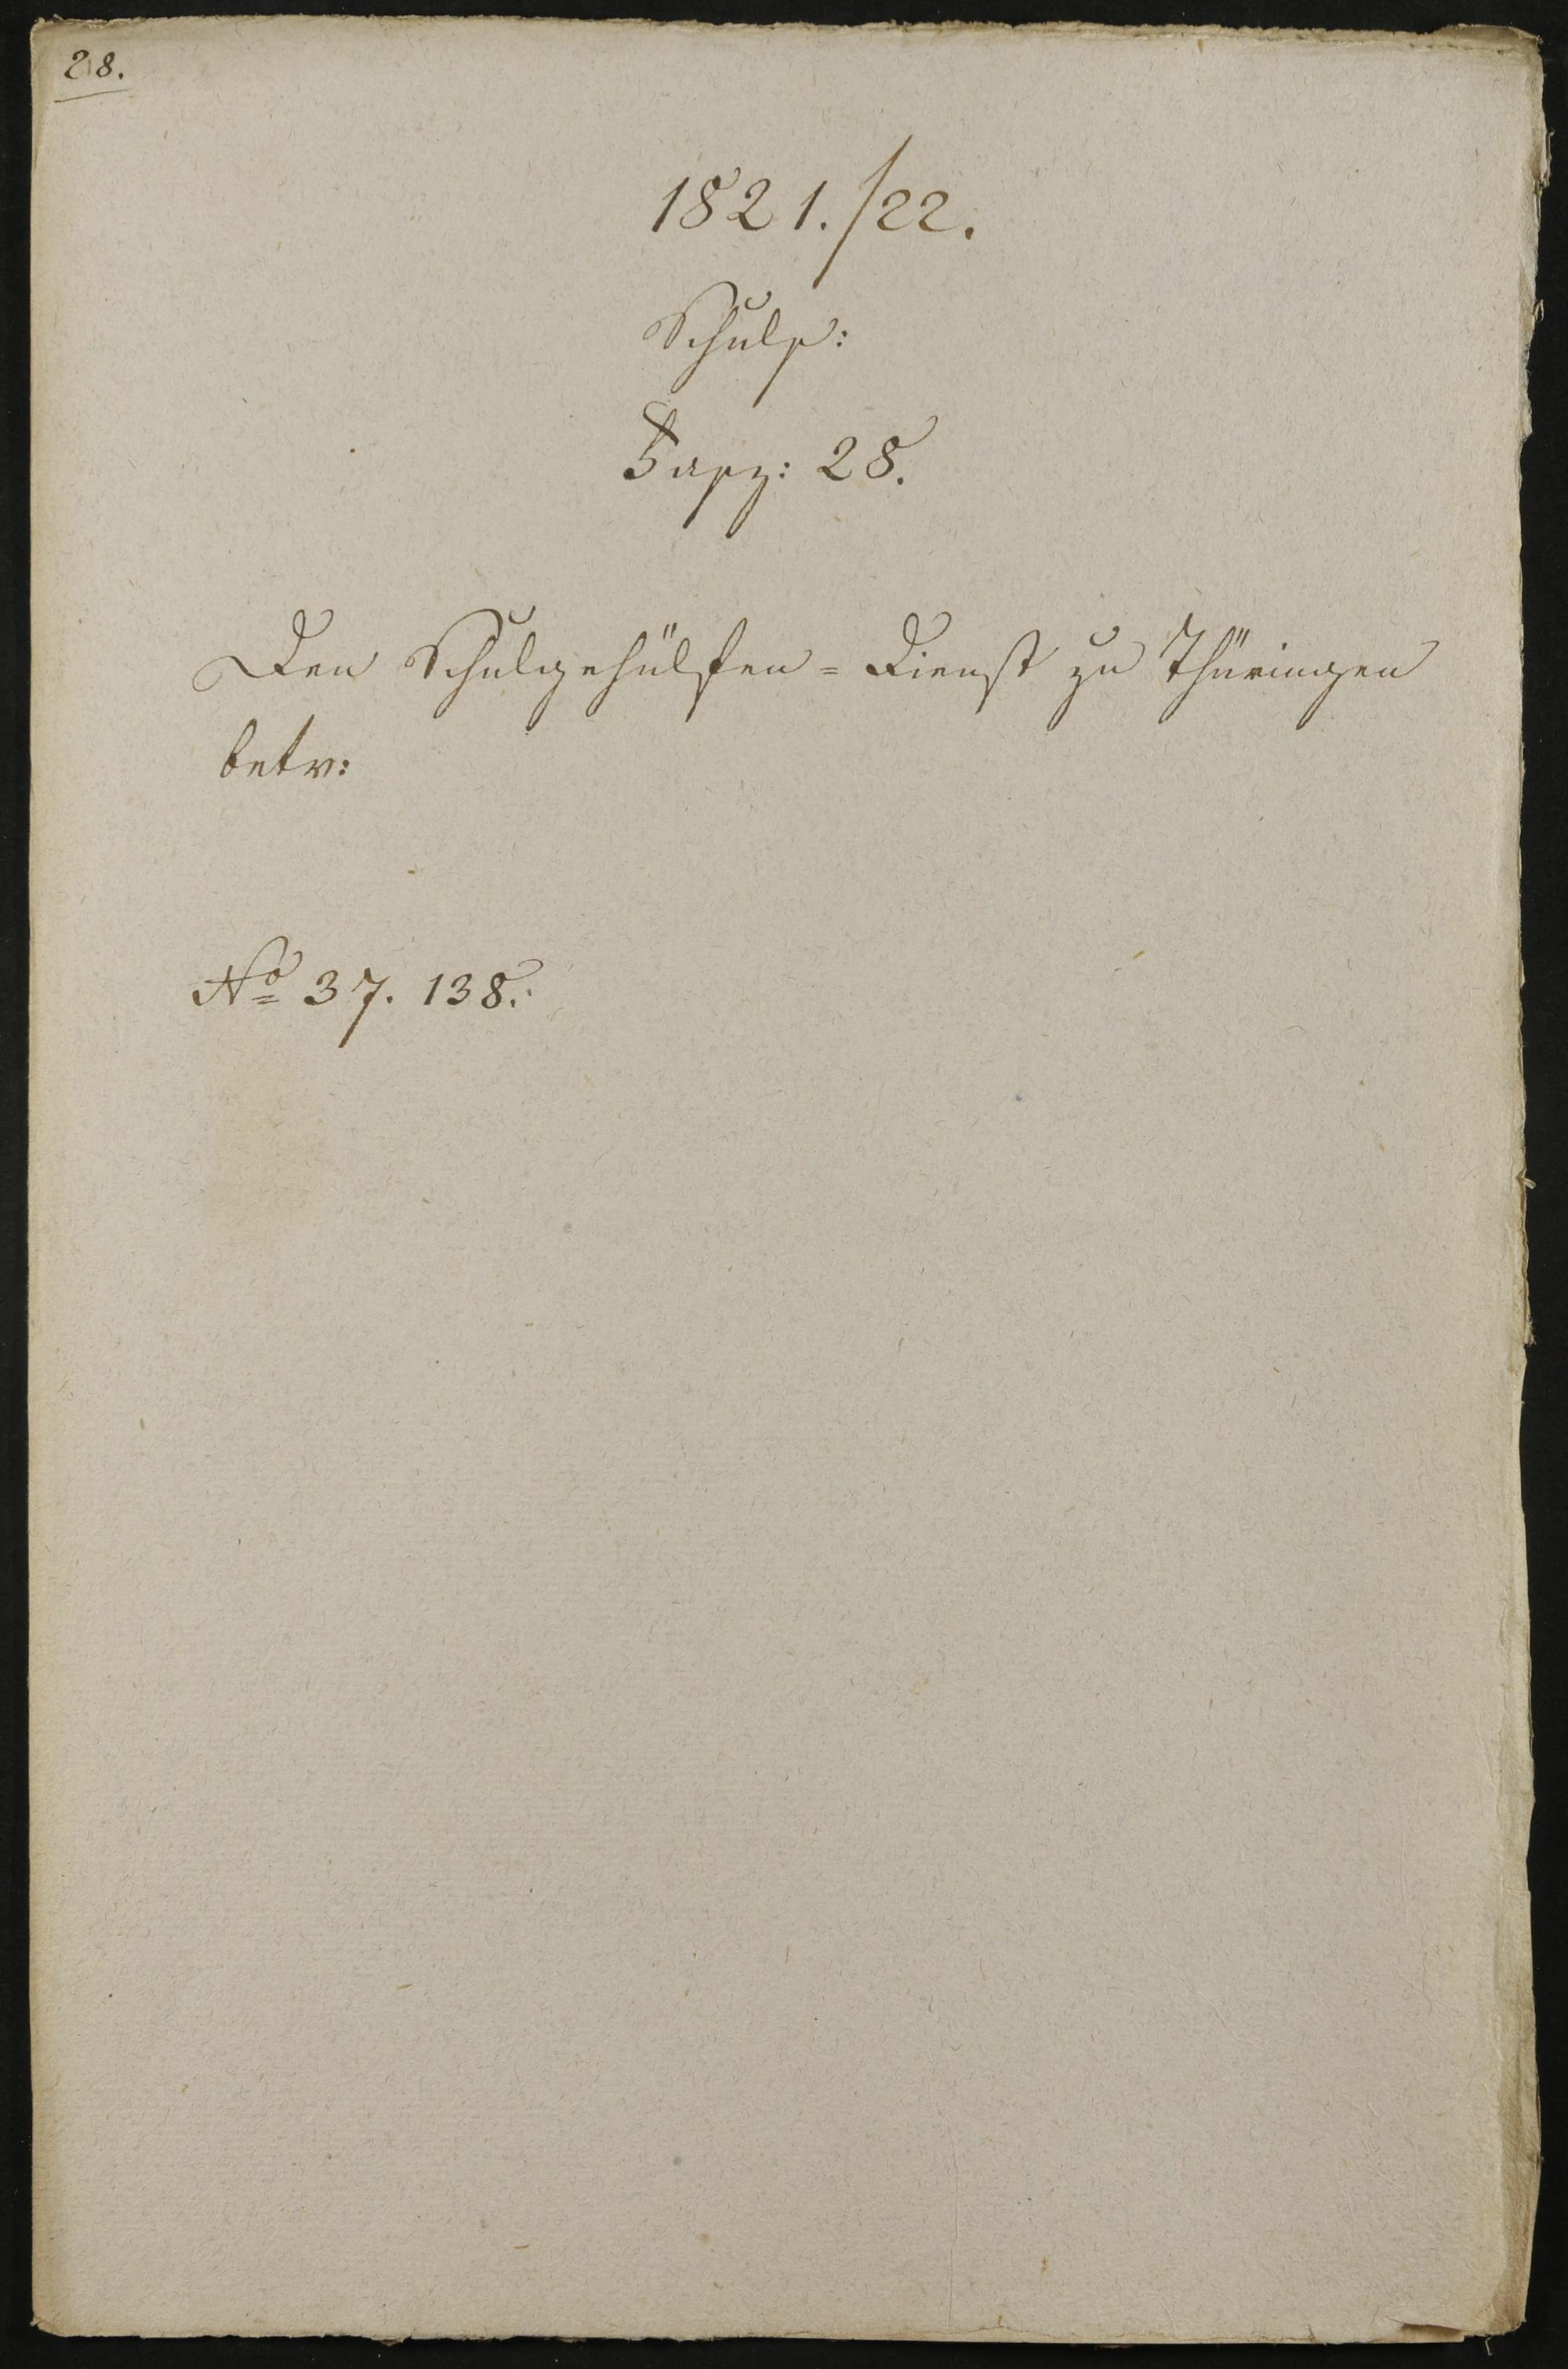 28.
1821./22.
Schulf:
Fasz: 28.
Den Schulgehülfen-Dienst zu Thüringen
betr:
No 37. 138.